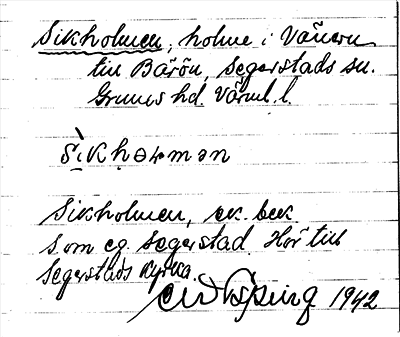 Sikholmen, holme i Vänern
till Bärön, Segerstads sn.
Grums hd. Värml. l.
Sikholmen, ek. beck.
som eg. Segerstad. Hör till
Segerstads kyrka.
1942